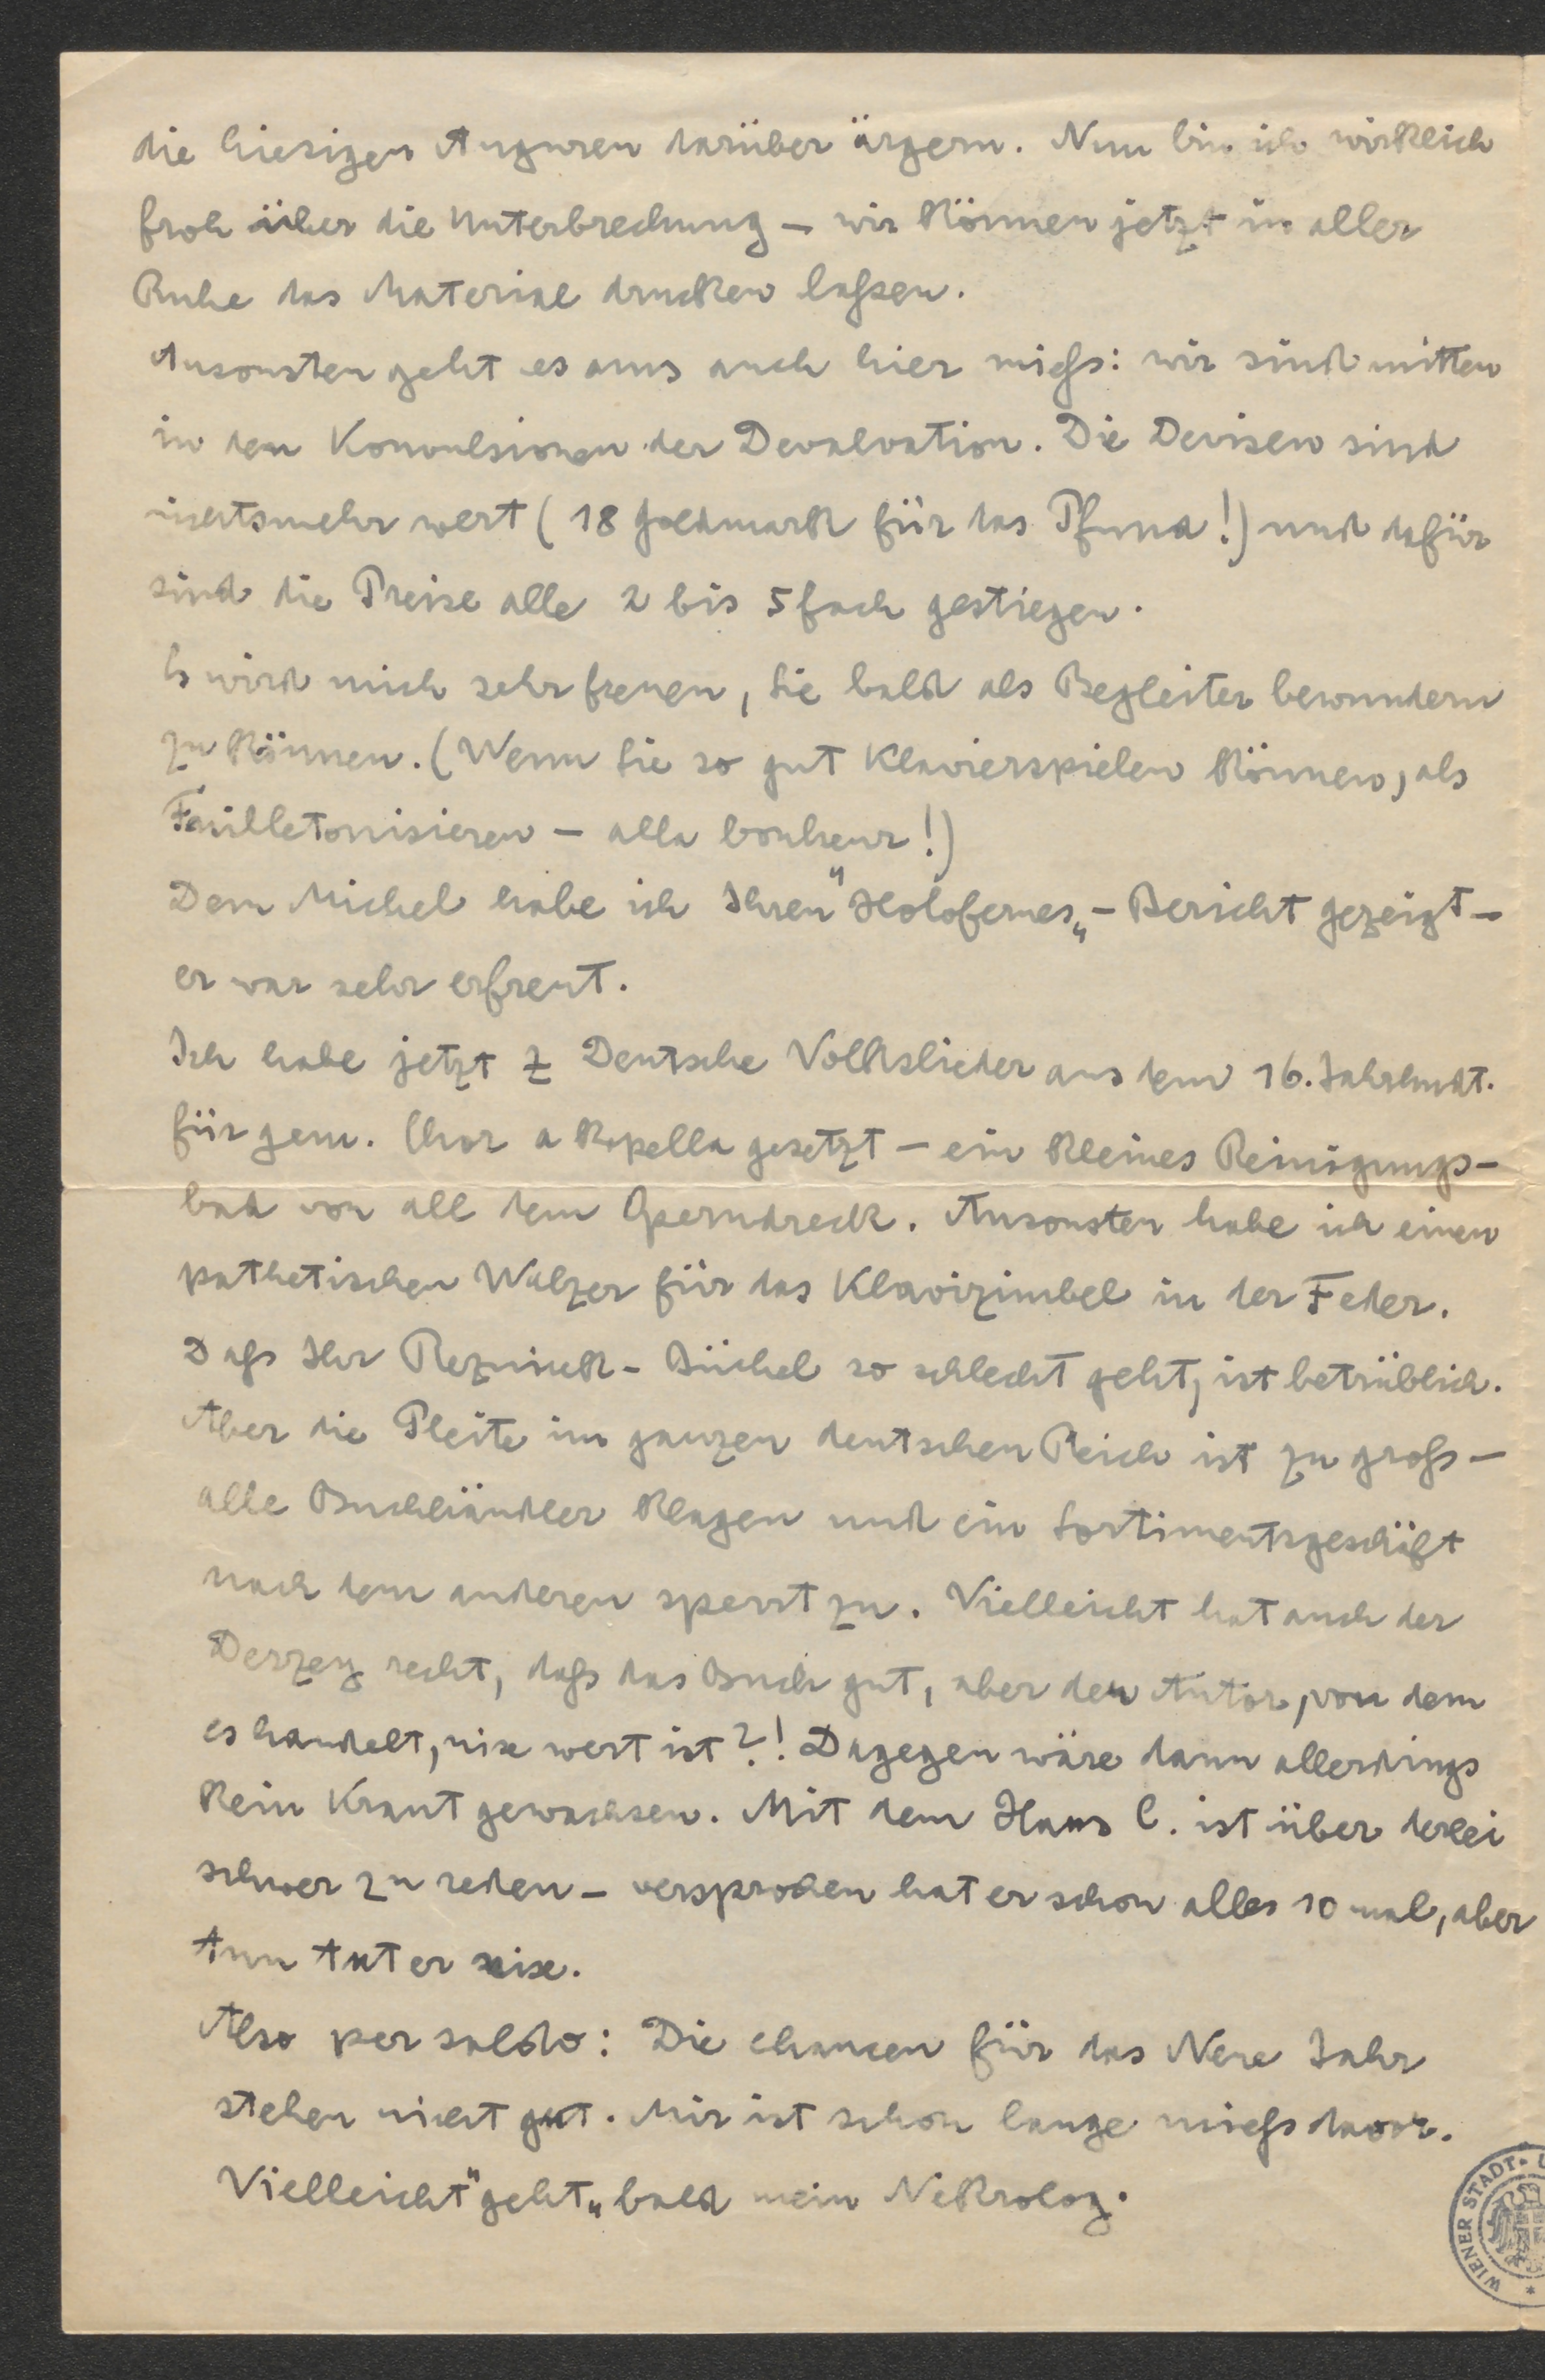 die hiesigen Auguren darüber ärgern. Nun bin ich wirklich
froh über die Unterbrechung – wir können jetzt in aller
Ruhe das Material drucken laſsen.
Ansonsten geht es uns auch hier mieſs: wir sind mitten
in den Konvulsionen der Devalvation. Die Devisen sind
nichtsmehr wert (18 Goldmark für das Pfund!) und dafür
sind die Preise alle 2 bis 5fach gestiegen.
Es wird mich sehr freuen, Sie bald als Begleiter bewundern
zu können. (Wenn Sie so gut Klavierspielen können, als
Feuilletonisieren – alla bonheur!)
Dem Michel habe ich Ihren "Holofernes„ – Bericht gezeigt –
er war sehr erfreut.
Ich habe jetzt Deutsche Volkslieder aus dem 16. Jahrhndt.
für gem. Chor a kapella gesetzt – ein kleines Reinigungs-
bad von all dem Operndreck. Ansonsten habe ich einen
pathetischen Walzer für das Klavizimbel in der Feder.
Daſs Ihr Reznicek-Büchel so schlecht geht, ist betrüblich.
Aber die Pleite im ganzen deutschen Reich ist zu groſs –
alle Buchhändler klagen und ein Sortimentsgeschäft
nach dem anderen sperrt zu. Vielleicht hat auch der
recht, daſs das Buch gut, aber der Autor, von dem
es handelt, nix wert ist?! Dagegen wäre dann allerdings
kein Kraut gewachsen. Mit dem Hans C. ist über derlei
schwer zu reden – versprochen hat er schon alles 10 mal, aber
tun tut er nix.
Also per saldo: Die chancen für das Neue Jahr
stehen nicht gut. Mir ist schon lange mieſs davor.
Vielleicht "geht„ bald mein Nekrolog.
WIENER STADT-